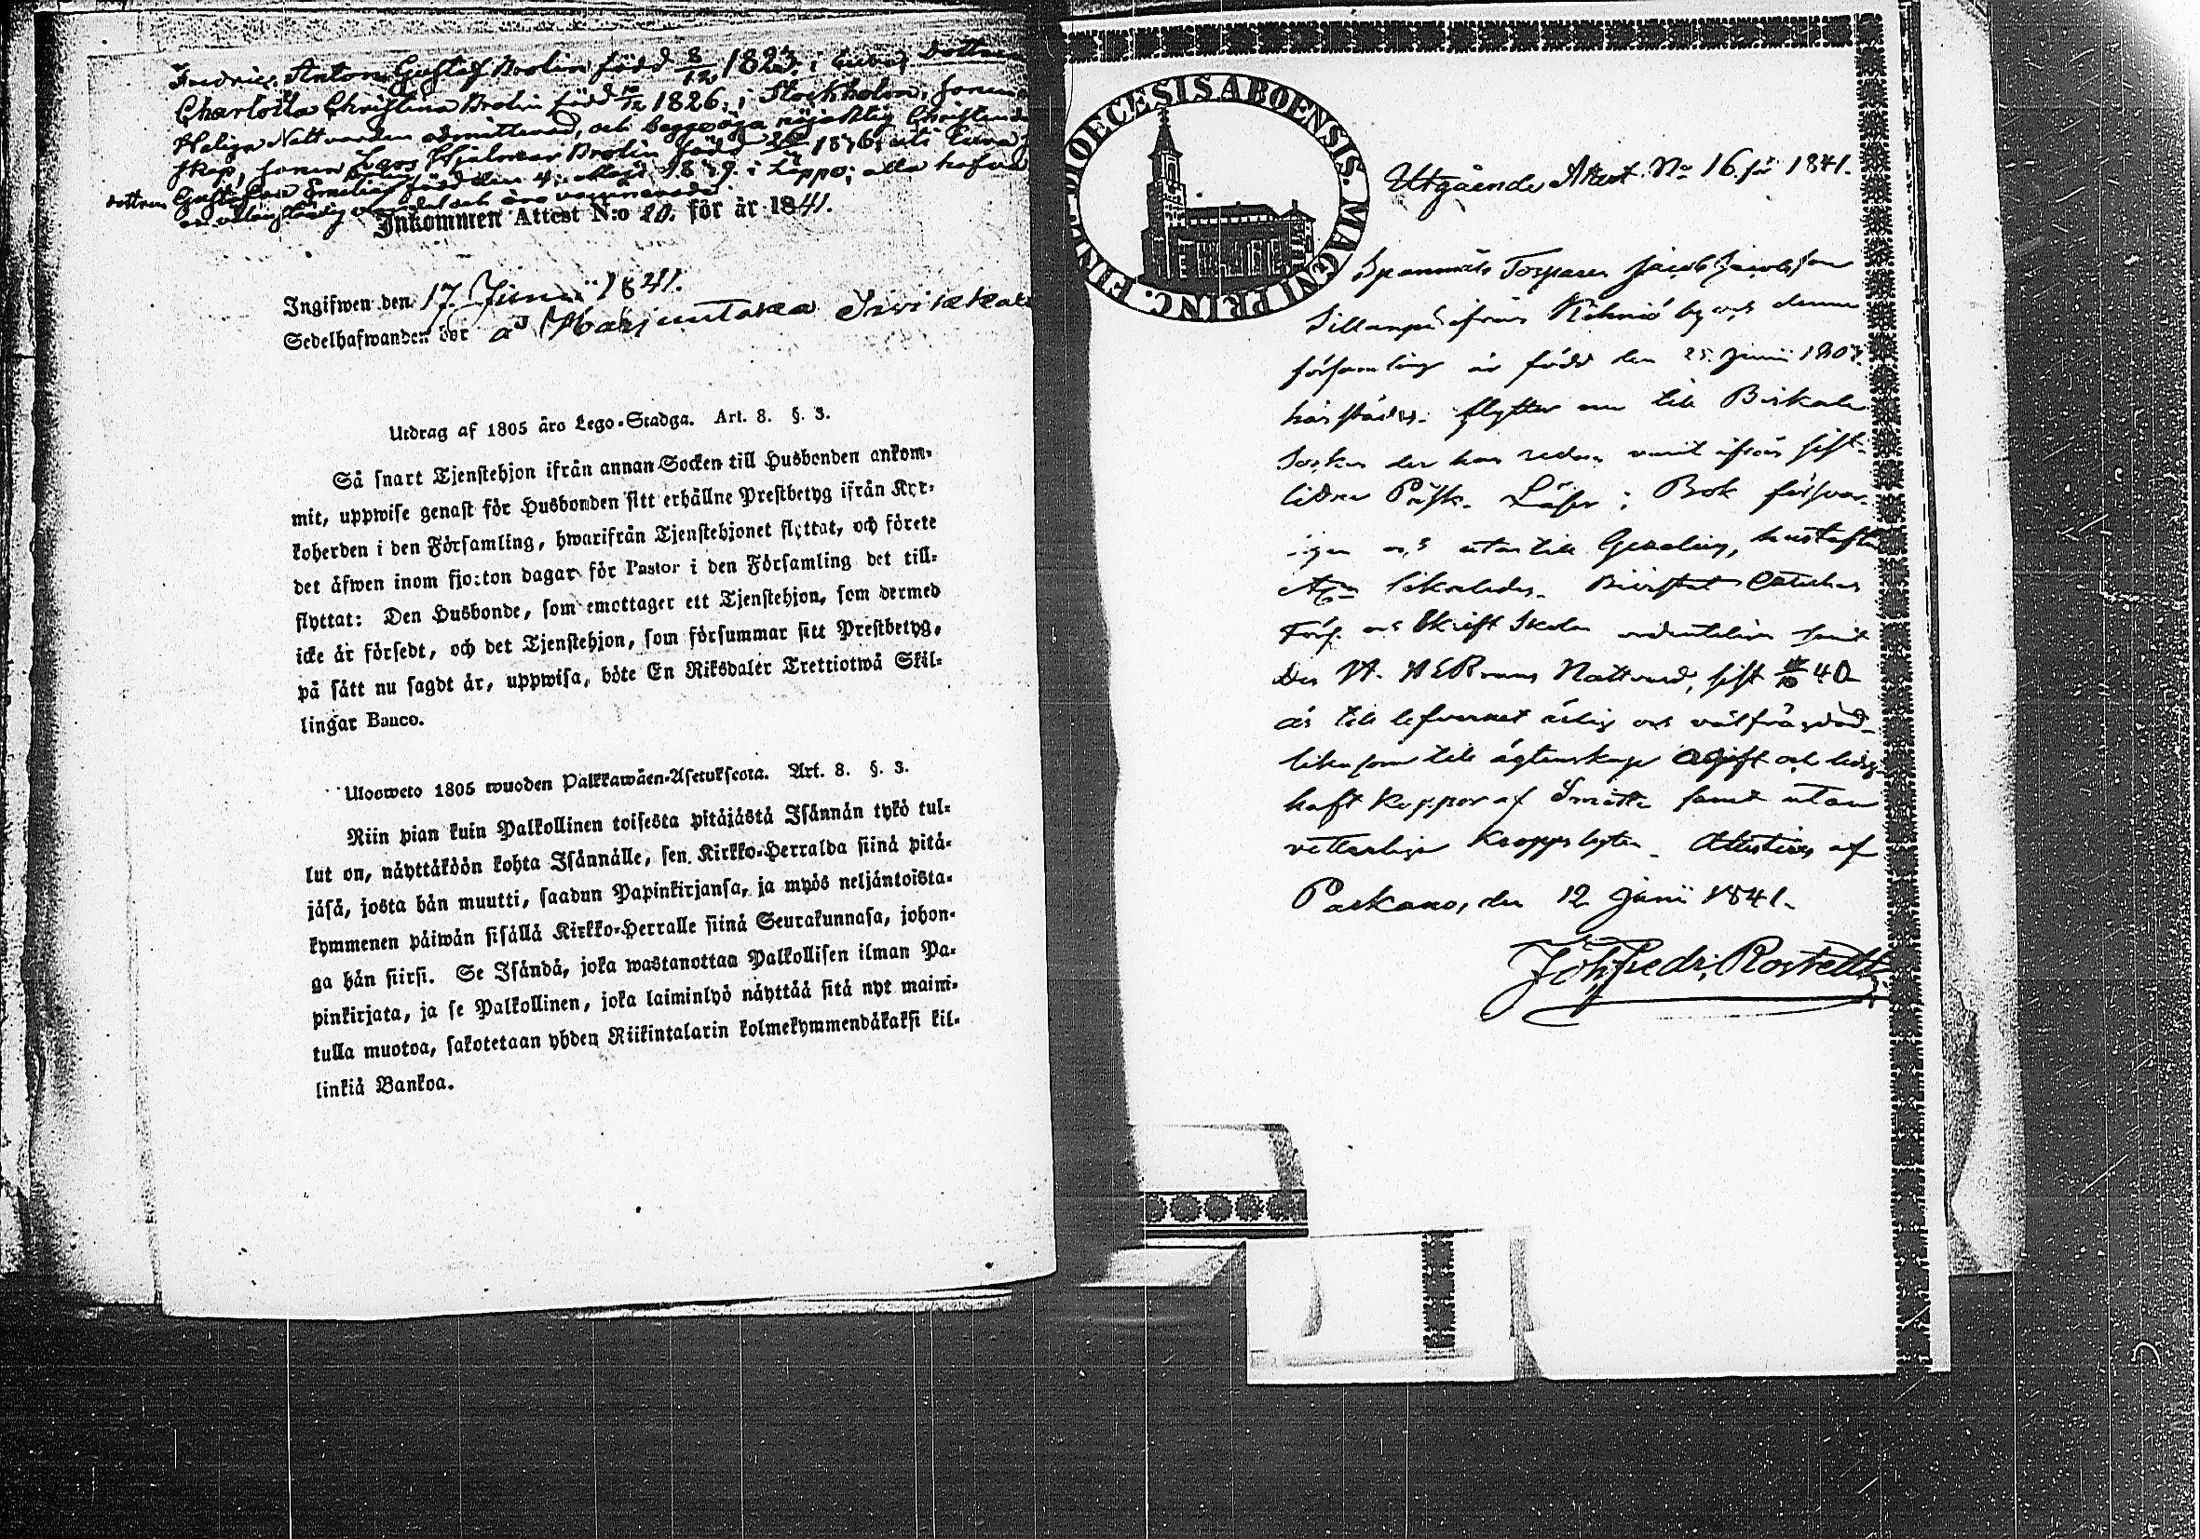 Fredric Anton Gustaf Brolin född 8/12 1823 i Eura, Dottren
Charlotta Christina Brolin född 1826 i Stockholm, sonen
Heliga Nattvarden admitterad, och begge äga nöjaktig Christendoms
skap, sonen Lars Hjalmar Brolin född 1836 uti Eura
dottren född den 4 Maji 1839 i Loppo; alla hafva
äro vaccinerade
Inkommen Attest N:o 20. för år 1841.
Ingifwen den 17 Junii 1841.
Sedelhafwanden bor å Harjuntaka
Utdrag af 1805 åro Lego-Stadga. Art. 8. §. 3.
Så snart Tjenstehjon ifrån annan Socken till Husbonden ankom-
mit, uppwise genast för Husbonden sitt erhållne Prestbetyg ifrån Kyr-
koherden i den Församling, hwarifrån Tjenstehjonet flyttat, och förete
det åfwen inom fjorton dagar för Pastor i den Församling det till-
flyttat: Den Husbonde, som emottager ett Tjenstehjon, som dermed
icke år försedt, och det Tjenstehjon, som försummar sitt Prestbetyg,
på sått nu sagdt år, uppwisa, böte En Riksdaler Trettiotwå Skil-
lingar Banco.
Ulosweto 1805 wuoden Palkkawåen-Asetuksesta. Art. 8. §. 3.
Niin pian kuin Palkollinen toisesta pitåjåstå Isånnån tykö tul-
lut on, nåyttåköön kohta Isånnålle, sen Kirkko-Herralda siinå pitå-
jåså, josta hån muutti, saadun Papinkirjansa, ja myös neljåntoista-
kymmenen påiwån sisållå Kirkko-Herralle siinå Seurakunnasa, johon-
ga hån siirsi. Se Isåndå, joka wastanottaa Palkollisen ilman Pa-
pinkirjata, ja se Palkollinen, joka laiminlyö nåyttåå sitå nyt maini-
tulla muotoa, sakotetaan yhden Riikintalarin kolmekymmendåkaksi kil-
linkiå Bankoa.
DIOECESIS ABOENSIS. MAGNI PRINC. FINL.
Utgående Attest. No 16. för 1841.
Spanmåls Torparen Jacob Jacobsson
Sillanpä ifrån Kihniö by och denna
församling är född den 25 Junii 1807
härstädes. flyttar nu till Birkala
Socken der han redan varit ifrån sist-
lidne Påsk. Läser i Bok försvar-
igen och utantill
likaledes. Bivistat
och Skrift Skolan ordentligen samt
Des H. HERrans Nattvard, sist 40
är till lefvernet ärlig och välfrägdad
liksom till ägtenskap ogift och ledig
haft Koppor af Smitta samt utan
vetterliga Kroppslyten. Attesteras af
Parkano, den 12 Junii 1841.
Joh. Fredr. Rostedt